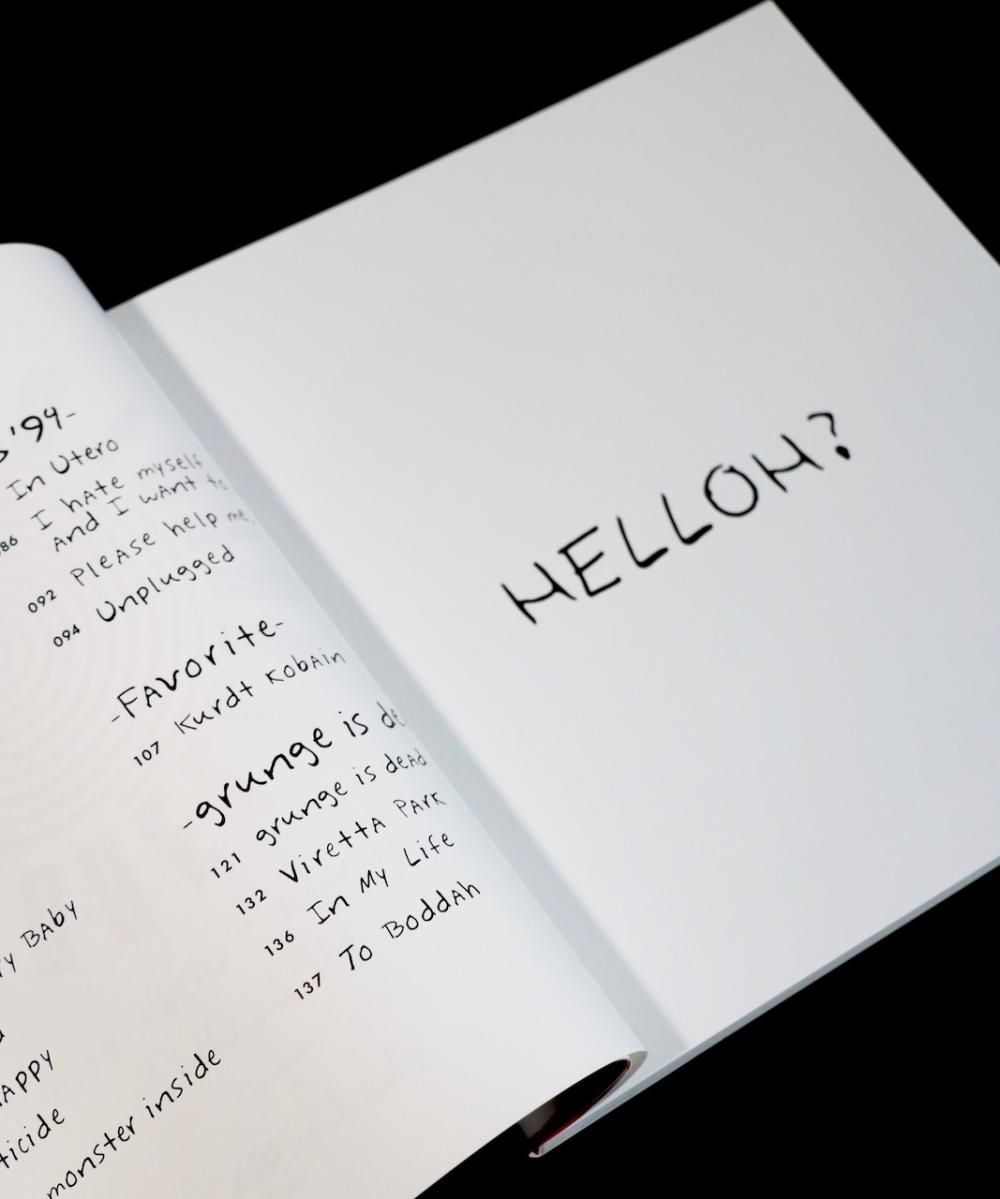 '94-
In Utero
086 I hate myself
And I want to
092 Please help me
094 Unplugged
-Favorite-
107 Kurdt Kobain
-grunge is de
121 grunge is dead
132 Viretta Park
136 In My Life
137 To Boddah
Baby
monster inside
HELLOH?